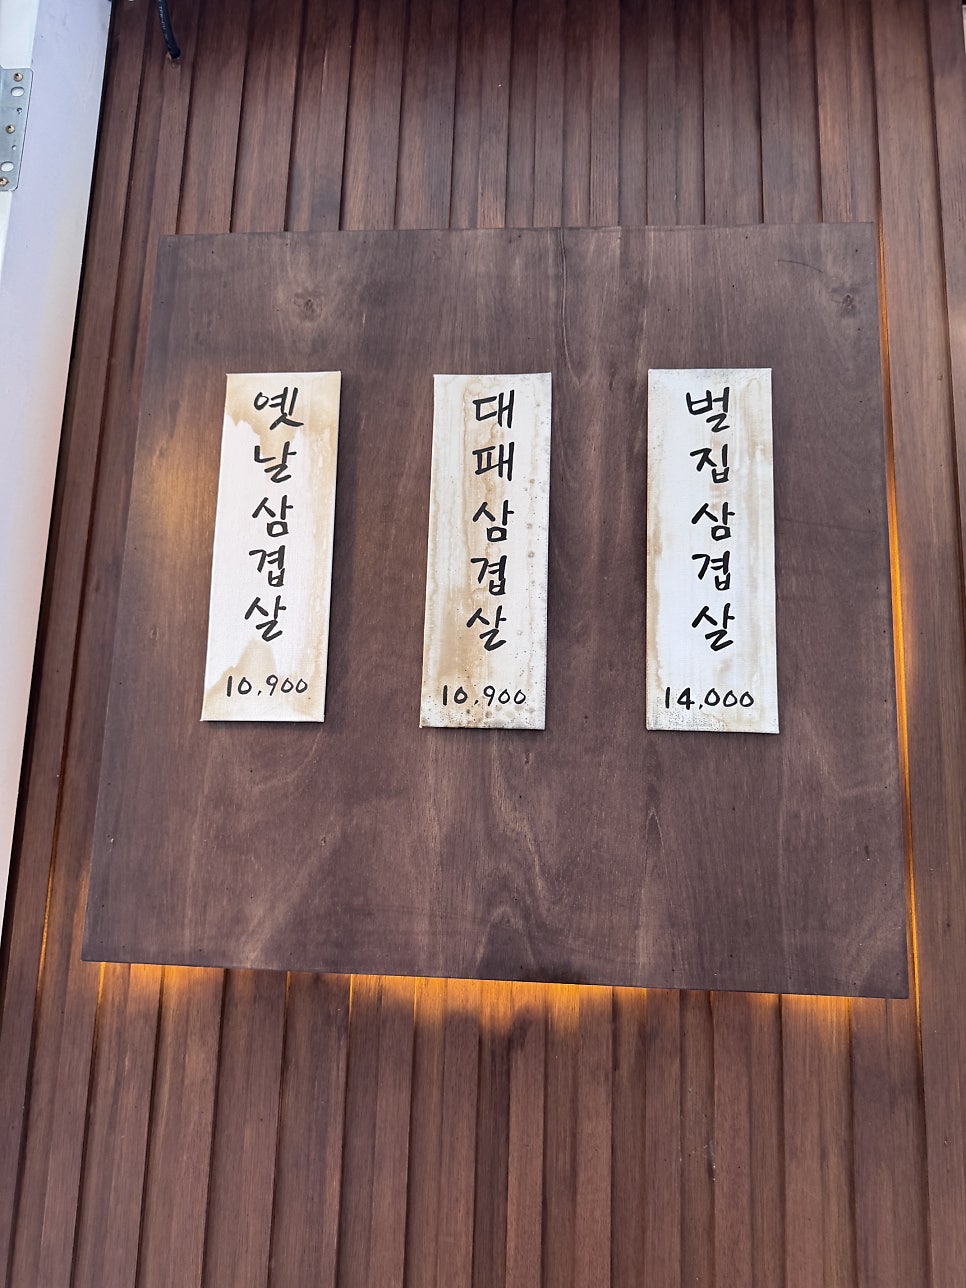 옛날삼겹살
10,900
대패삼겹살
10,900
벌집삼겹살
14,000